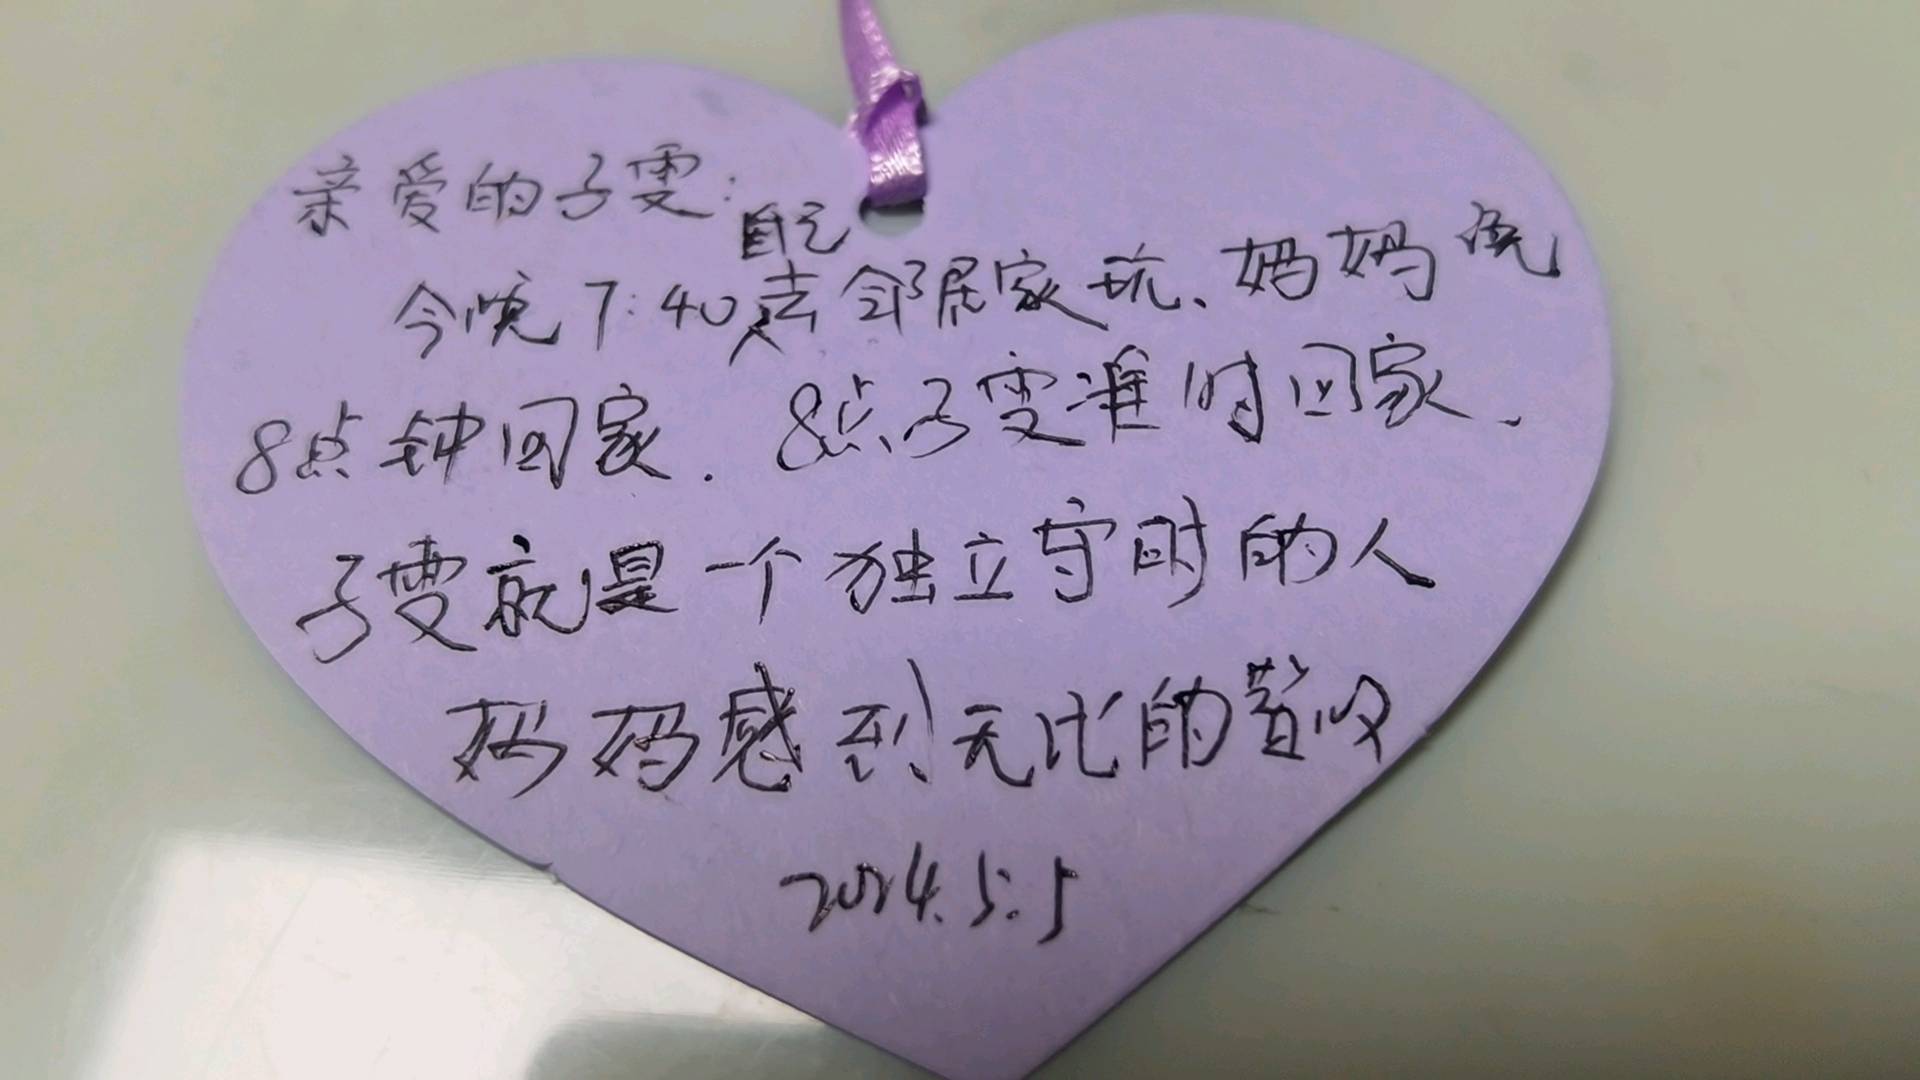 亲爱的子雯：
自己
今晚7:40去邻居家玩、妈妈说
8点钟回家.8点子雯准时回家.
子雯就是一个独立守时的人
妈妈感到无比的
2024.5.5